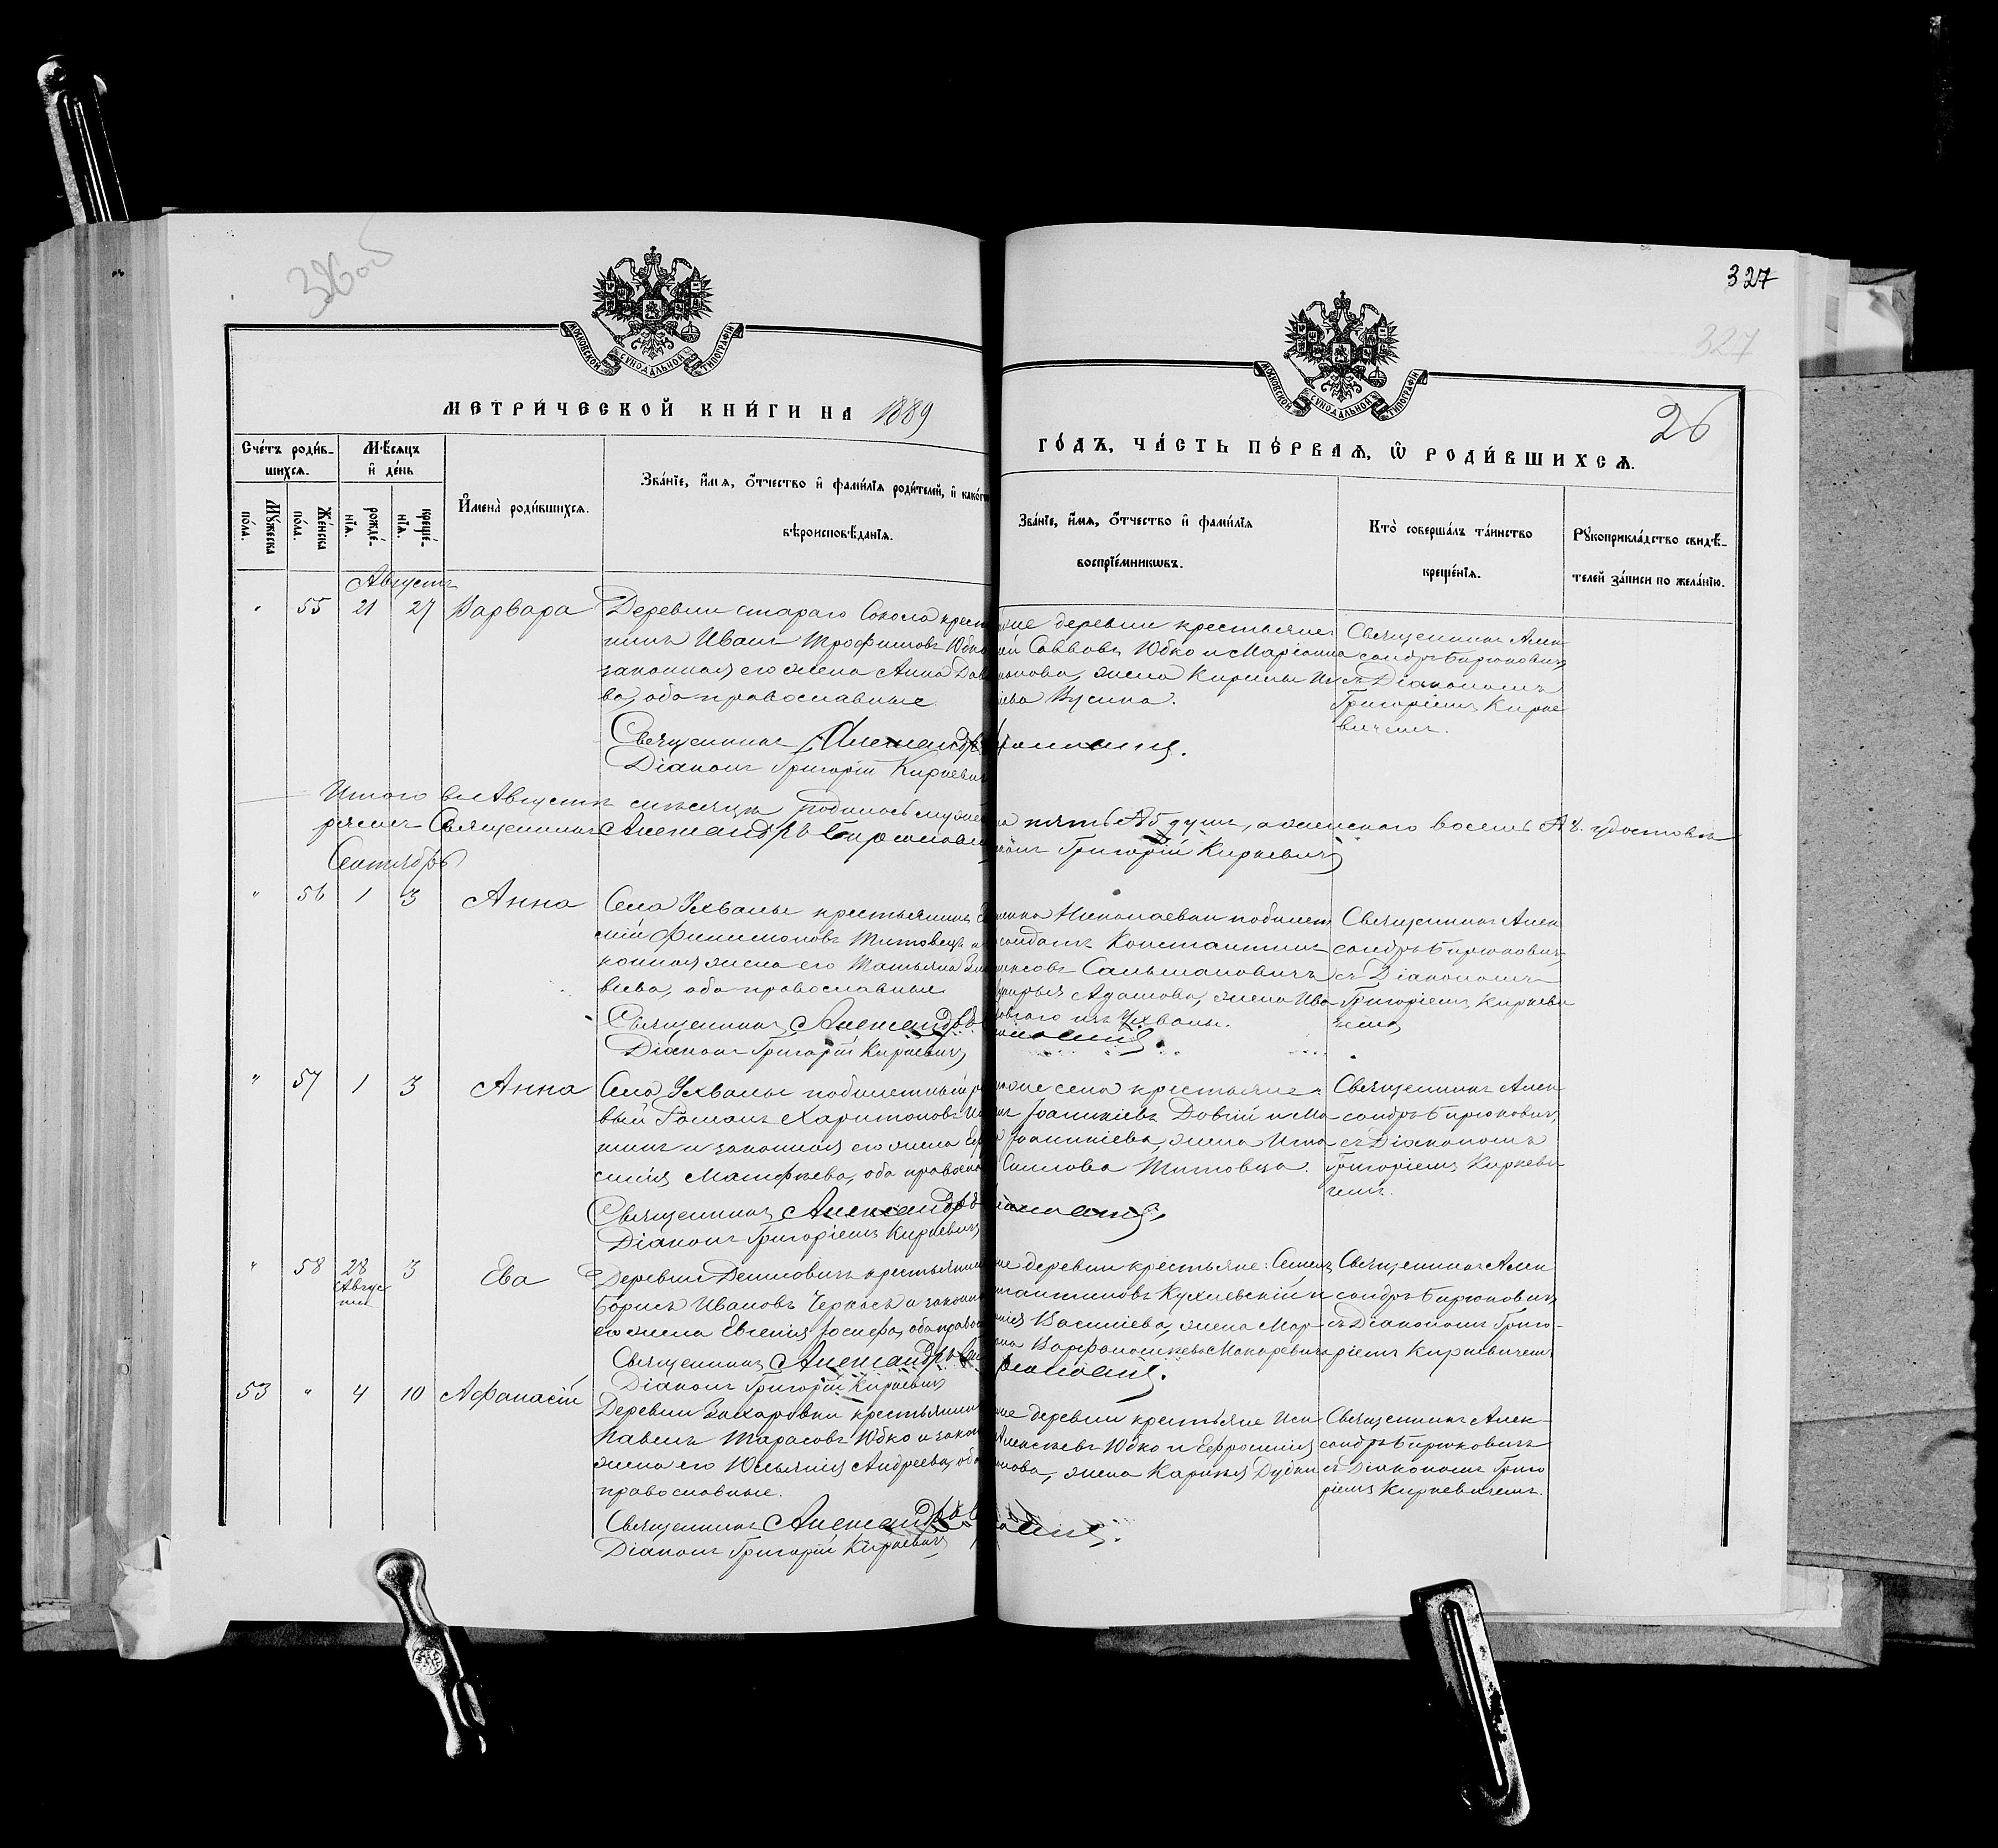 326об
327
327
26
МОСКОВСКОЙ СѴНОДАЛЬНОЙ ТИПОГРАФІИ
МОСКОВСКОЙ СѴНОДАЛЬНОЙ ТИПОГРАФІИ
МЕТРИ́ЧЕСКОЙ КНИ́ГИ НА 1889
ГО́ДЪ, ЧА́СТЬ ПЕ́РВАѦ, Ѡ҆ РОДИ́ВШИХСѦ.
Сче́тъ роди́в-
шихсѧ.
Мꙋ́жеска
по́ла.
Же́нска
по́ла.
Мѣ́сѧцъ
и҆ де́нь
рожде́-
нїѧ.
креще́-
нїѧ.
И҆мена̀ роди́вшихсѧ.
Зва́нїе, и҆́мѧ, ѻ҆́тчество и҆ фами́лїѧ роди́телей, и҆ како́гѡ
вѣроисповѣ́данїѧ.
Зва́нїе, и҆́мѧ, ѻ҆́тчество и҆ фами́лїѧ
воспрїе́мникѡвъ.
Кто̀ соверша́лъ та́инство
креще́нїѧ.
Рꙋкоприкла́дство свидѣ́-
телей за́писи по жела́нїю.
Августъ
" 55 21 27 Варвара
Деревни стараго Сокола крест
нинъ Иванъ Трофимовъ Юбко
законная его жена Анна Дав
ва, оба православные.
Священникъ Александръ
Діаконъ Григорій Киркевичъ
ой же деревни крестьяне:
Саввовъ Юбко и Маріанна
жена Кирилы
Священникъ Алек-
сандръ Бирюковичъ
съ Діакономъ
Григоріемъ Кирке
вичемъ.
Итого въ Августѣ мѣсяцѣ родилось мужеска пять №5 душъ, а женскаго восемь №8. удостовѣ-
ряемъ Священникъ Александръ Бирюковичъ Діаконъ Григорій Киркевичъ
Сентябрь
" 56 1 3 Анна
Села Ухвалы крестьянинъ
Филимоновъ Титовецъ и
конная жена его Татьяна
ва, оба православные
Священникъ Александръ
Діаконъ Григорій Киркевичъ
Николаевки
солдатъ Константинъ
Сальмановичъ
Адамова, жена Ива
изъ Ухвалы.
Священникъ Алек
сандръ Бирюковичъ
съ Діакономъ
Григоріемъ Киркеви
чемъ
" 57 1 3 Анна
Села Ухвалы
вый Романъ Харитоновъ
и законная его жена
Матфѣева, оба правосл
Священникъ Александръ
Діаконъ Григоріемъ Киркевичъ
села крестьяне:
Іоанникіевъ Довгій и Ма
Іоанникіева, жена
Титовца.
Священникъ Алек
сандръ Бирюковичъ
съ Діакономъ
Григоріемъ Киркеви
чемъ.
" 58 28 3 Ева
Авгус
та
Деревни Денисовичъ крестьянинъ
Борисъ Ивановъ Черкасъ и законн
его жена Евгенія Іосифова, оба правос
Священникъ Александръ
Діаконъ Григорій Киркевичъ
же деревни крестьяне: Семенъ
Кухлевскій и
Василіева, жена Мар-
Варфоломѣева Макаревича
Священникъ Алек
сандръ Бирюковичъ
съ Діакономъ Григо-
ріемъ Киркевичемъ
53 " 4 10 Афанасій
Деревни Захаровки крестьянинъ
Павелъ Тарасовъ Юбко и закон
жена его Юльянія Андреева, оба
православные.
Священникъ Александръ
Діаконъ Григорій Киркевичъ
же деревни крестьяне
Алексѣевъ Юбко и Ефросинія
жена Карнея
Священникъ Алек-
сандръ Бирюковичъ
съ Діакономъ Григо
ріемъ Киркевичемъ.